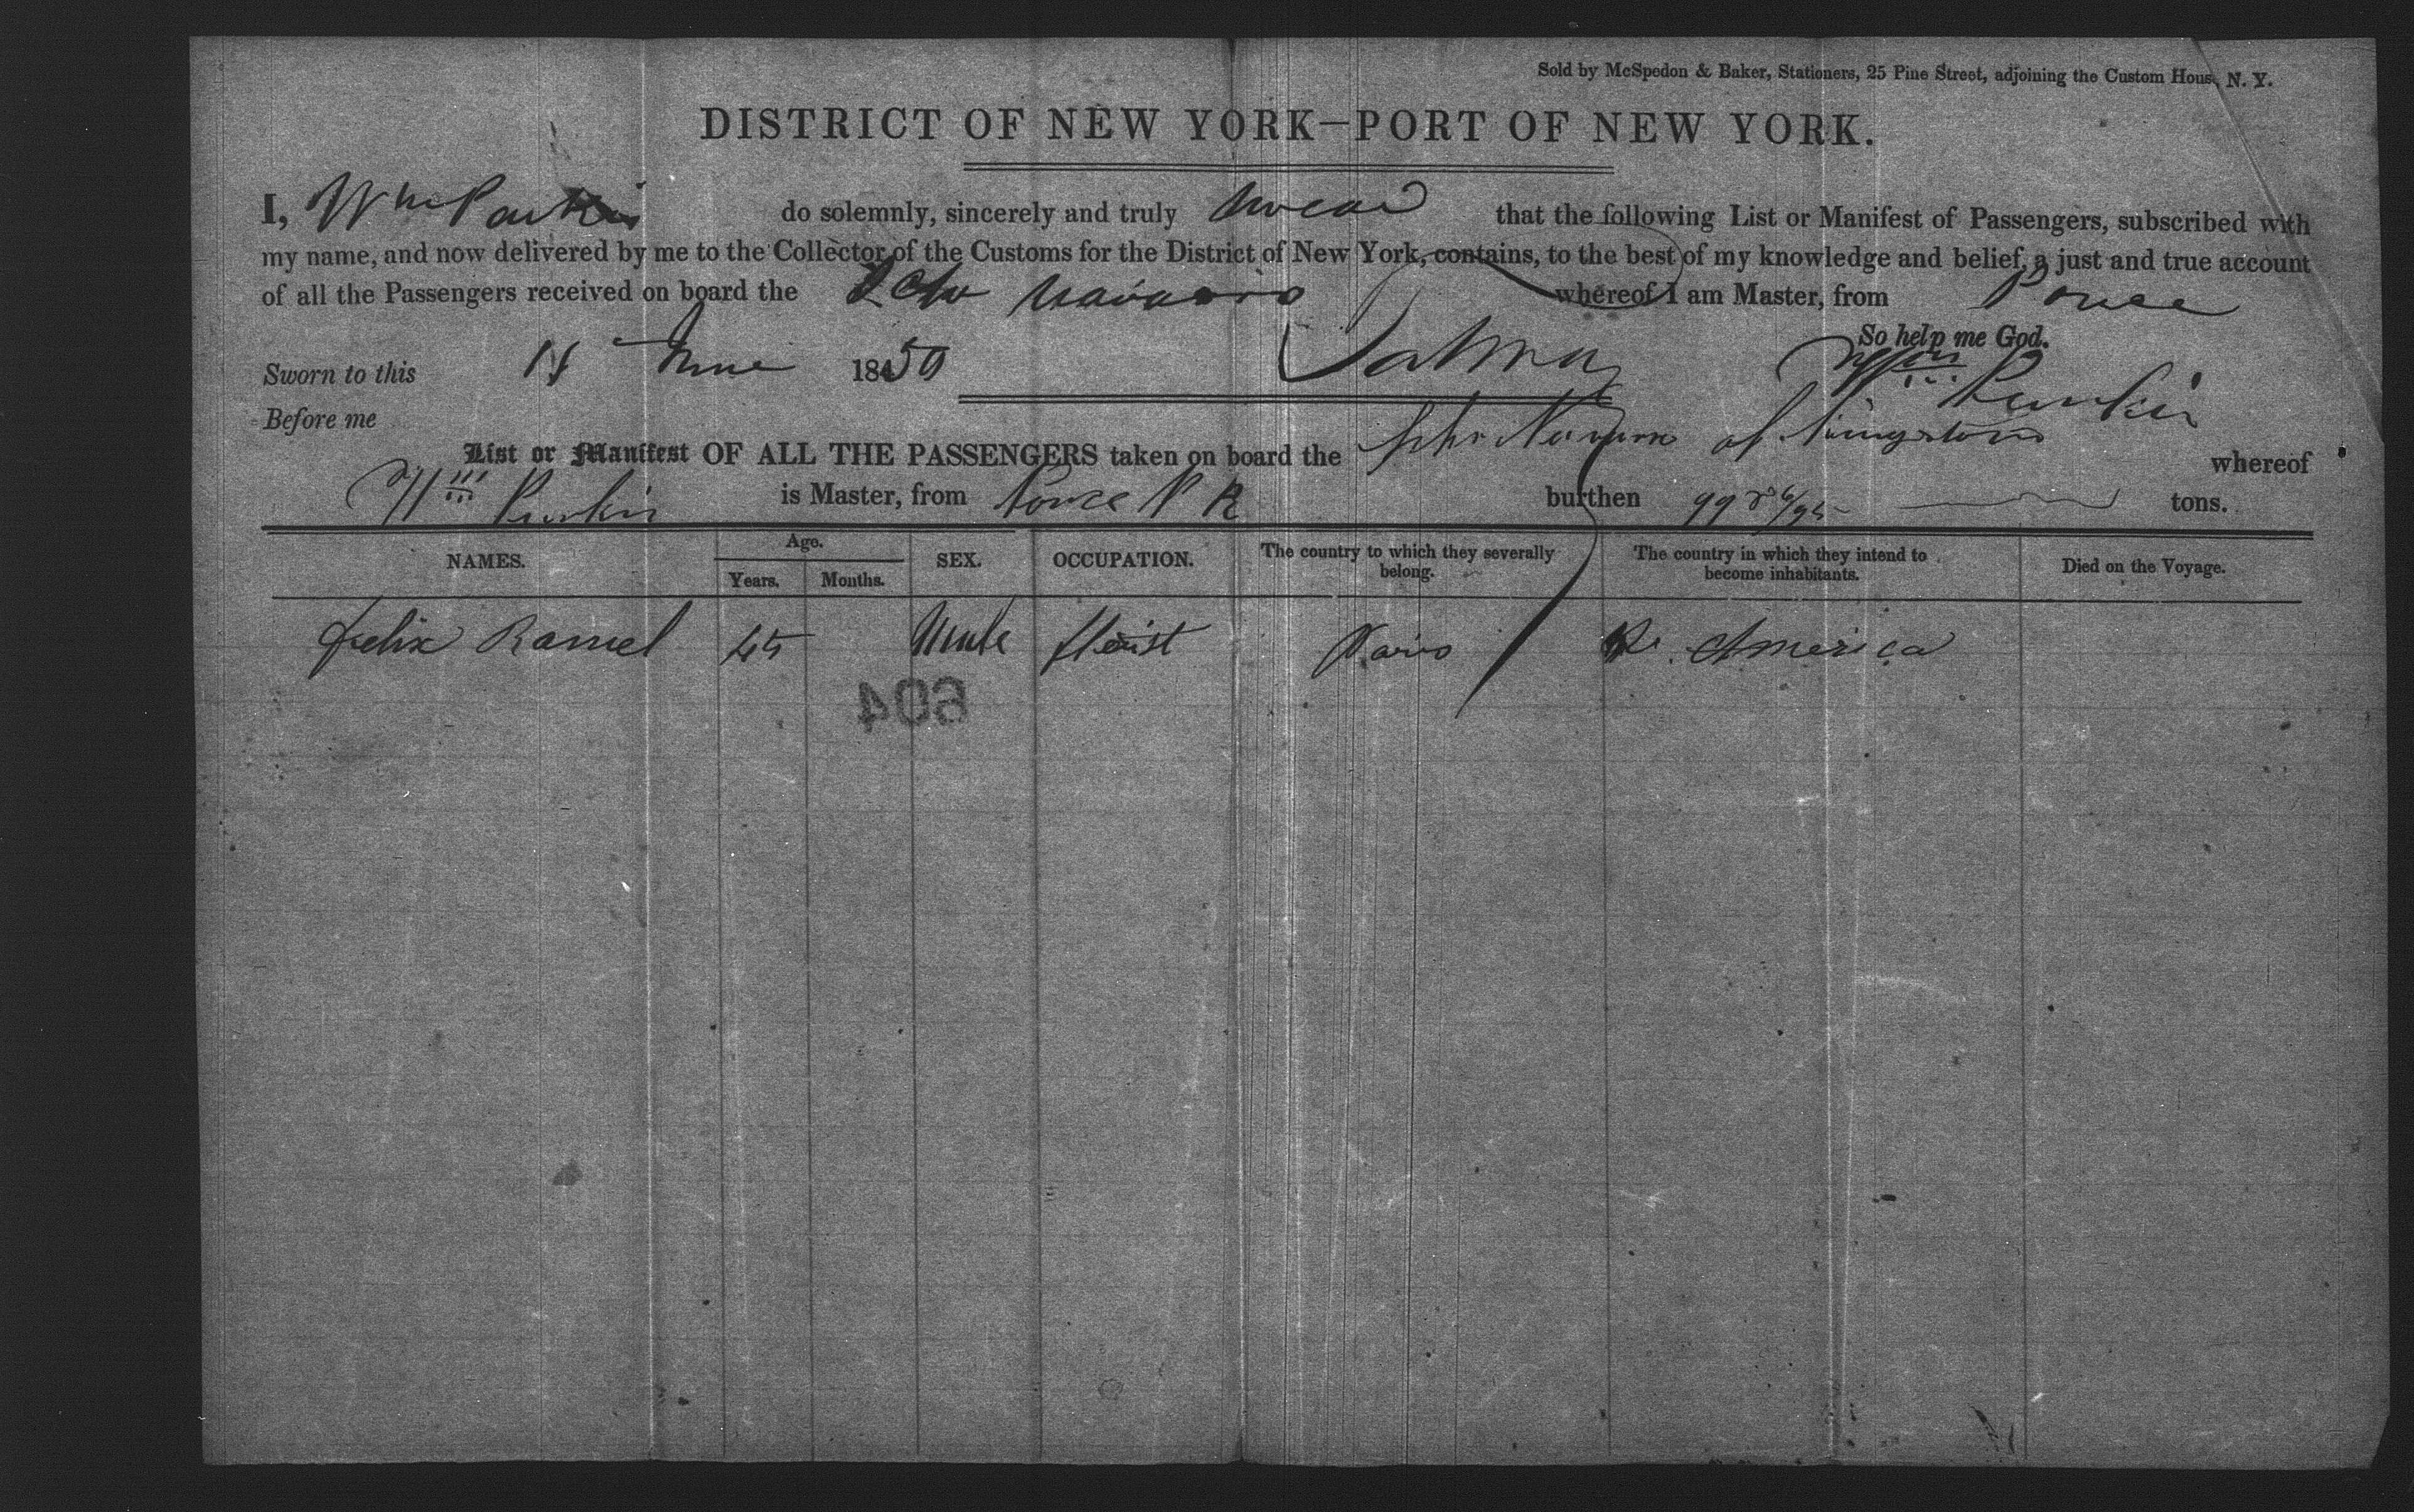 Sold by McSpedon & Baker, Stationers, 25 Pine Street, adjoining the Custom House, N. Y.
DISTRICT OF NEW YORK—PORT OF NEW YORK.
I, Wm do solemnly, sincerely and truly swear that the following List or Manifest of Passengers, subscribed with
my name, and now delivered by me to the Collector of the Customs for the District of New York, contains, to the best of my knowledge and belief, a just and true account
of all the Passengers received on board the Schr whereof I am Master, from Ponce
So help me God.
Sworn to this June 1850 Wm
Before me
List or Manifest OF ALL THE PASSENGERS taken on board the Schr of whereof
Wm is Master, from Ponce P R burthen 99 tons.
NAMES. Age. SEX. OCCUPATION. The country to which they severally belong. The country in which they intend to become inhabitants. Died on the Voyage.
Years. Months.
Felix 45 Male Paris America
604